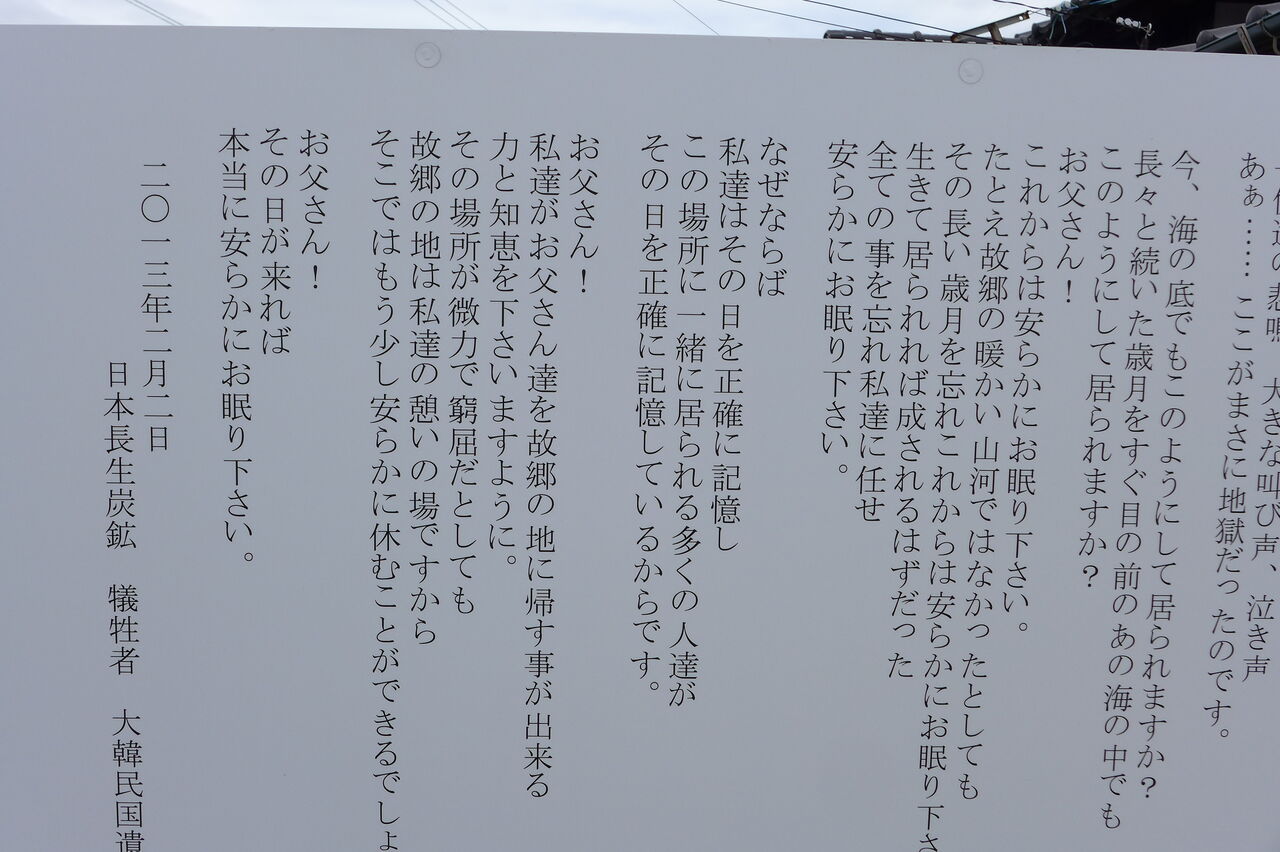 悲鳴 大きな叫び声、泣き声
あぁ…… ここがまさに地獄だったのです。
今、海の底でもこのようにして居られますか？
長々と続いた歳月をすぐ目の前のあの海の中でも
このようにして居られますか？
お父さん！
これからは安らかにお眠り下さい。
たとえ故郷の暖かい山河ではなかったとしても
その長い歳月を忘れこれからは安らかにお眠り下さ
生きて居られれば成されるはずだった
全ての事を忘れ私達に任せ
安らかにお眠り下さい。
なぜならば
私達はその日を正確に記憶し
この場所に一緒に居られる多くの人達が
その日を正確に記憶しているからです。
お父さん！
私達がお父さん達を故郷の地に帰す事が出来る
力と知恵を下さいますように。
その場所が微力で窮屈だとしても
故郷の地は私達の憩いの場ですから
そこではもう少し安らかに休むことができるでしょ
お父さん！
その日が来れば
本当に安らかにお眠り下さい。
二〇一三年二月二日
日本長生炭鉱 犠牲者 大韓民国遺